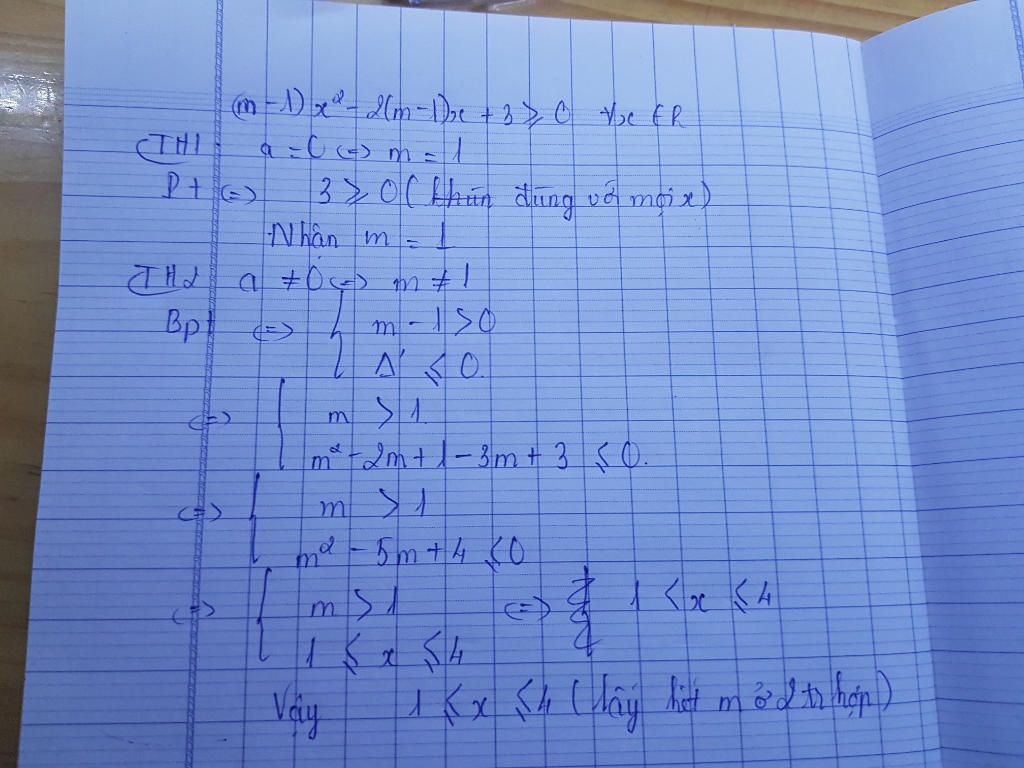 (m-1)x² - 2(m-1)x + 3 ⩾ 0 ∀x ∈ R
TH1 a = 0 <=> m = 1
Pt <=> 3 ⩾ 0 (đúng với mọi x)
Nhận m = 1
TH2 a ≠ 0 <=> m ≠ 1
Bpt <=> { m - 1 > 0
Δ' ⩽ 0.
<=> { m > 1
m² - 2m + 1 - 3m + 3 ⩽ 0.
<=> { m > 1
m² - 5m + 4 ⩽ 0
<=> { m > 1 <=> 1 < x ⩽ 4
1 ⩽ x ⩽ 4
Vậy 1 ⩽ x ⩽ 4 (lấy hết m ở 2 tr hợp)